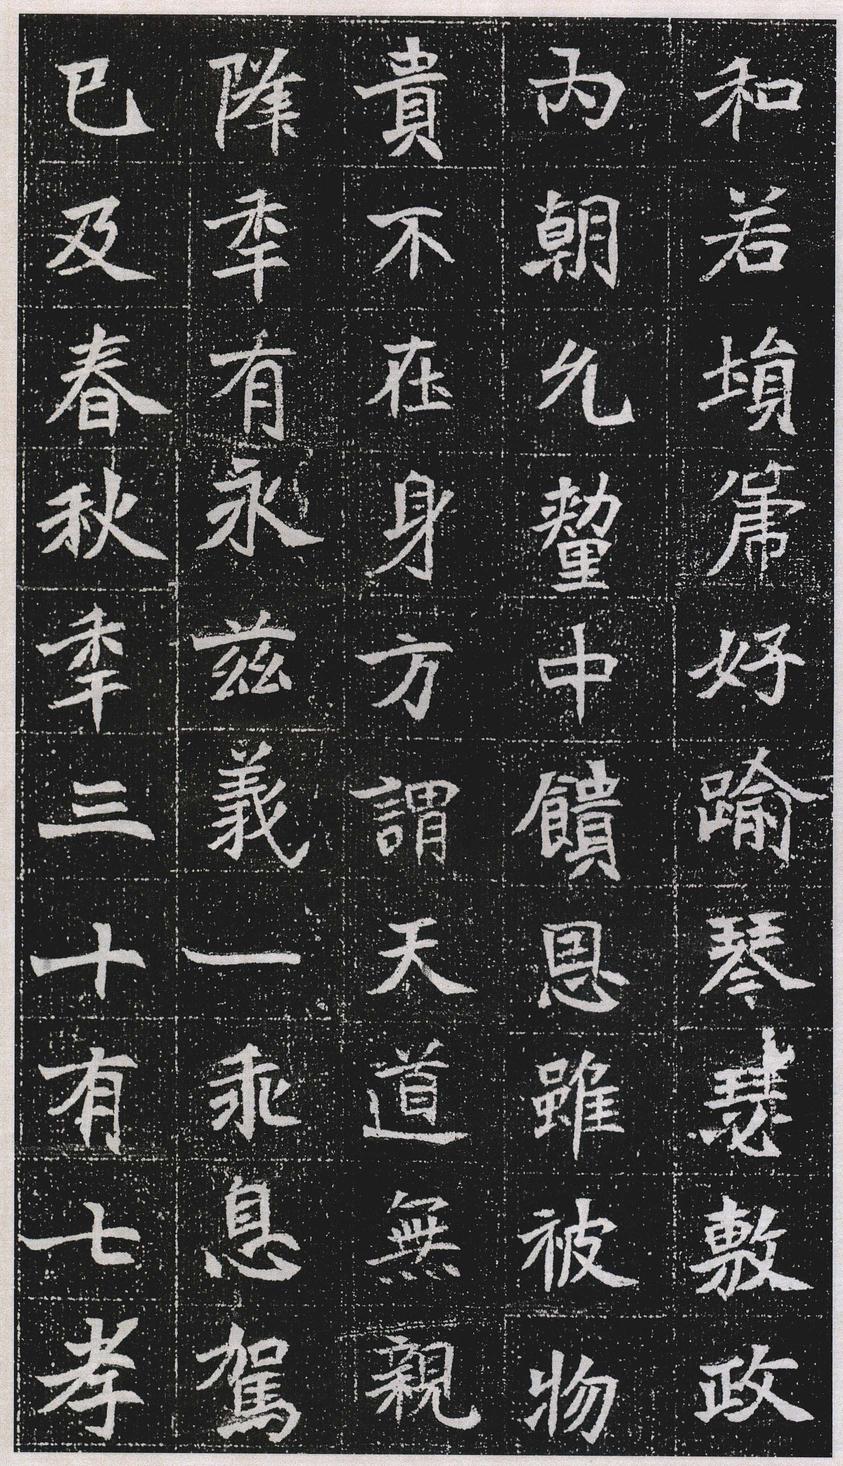 和若塤篪好踰琴瑟敷政
內朝允釐中饋恩雖被物
貴不在身方謂天道無親
降年有永茲義一乖息駕
已及春秋年三十有七孝